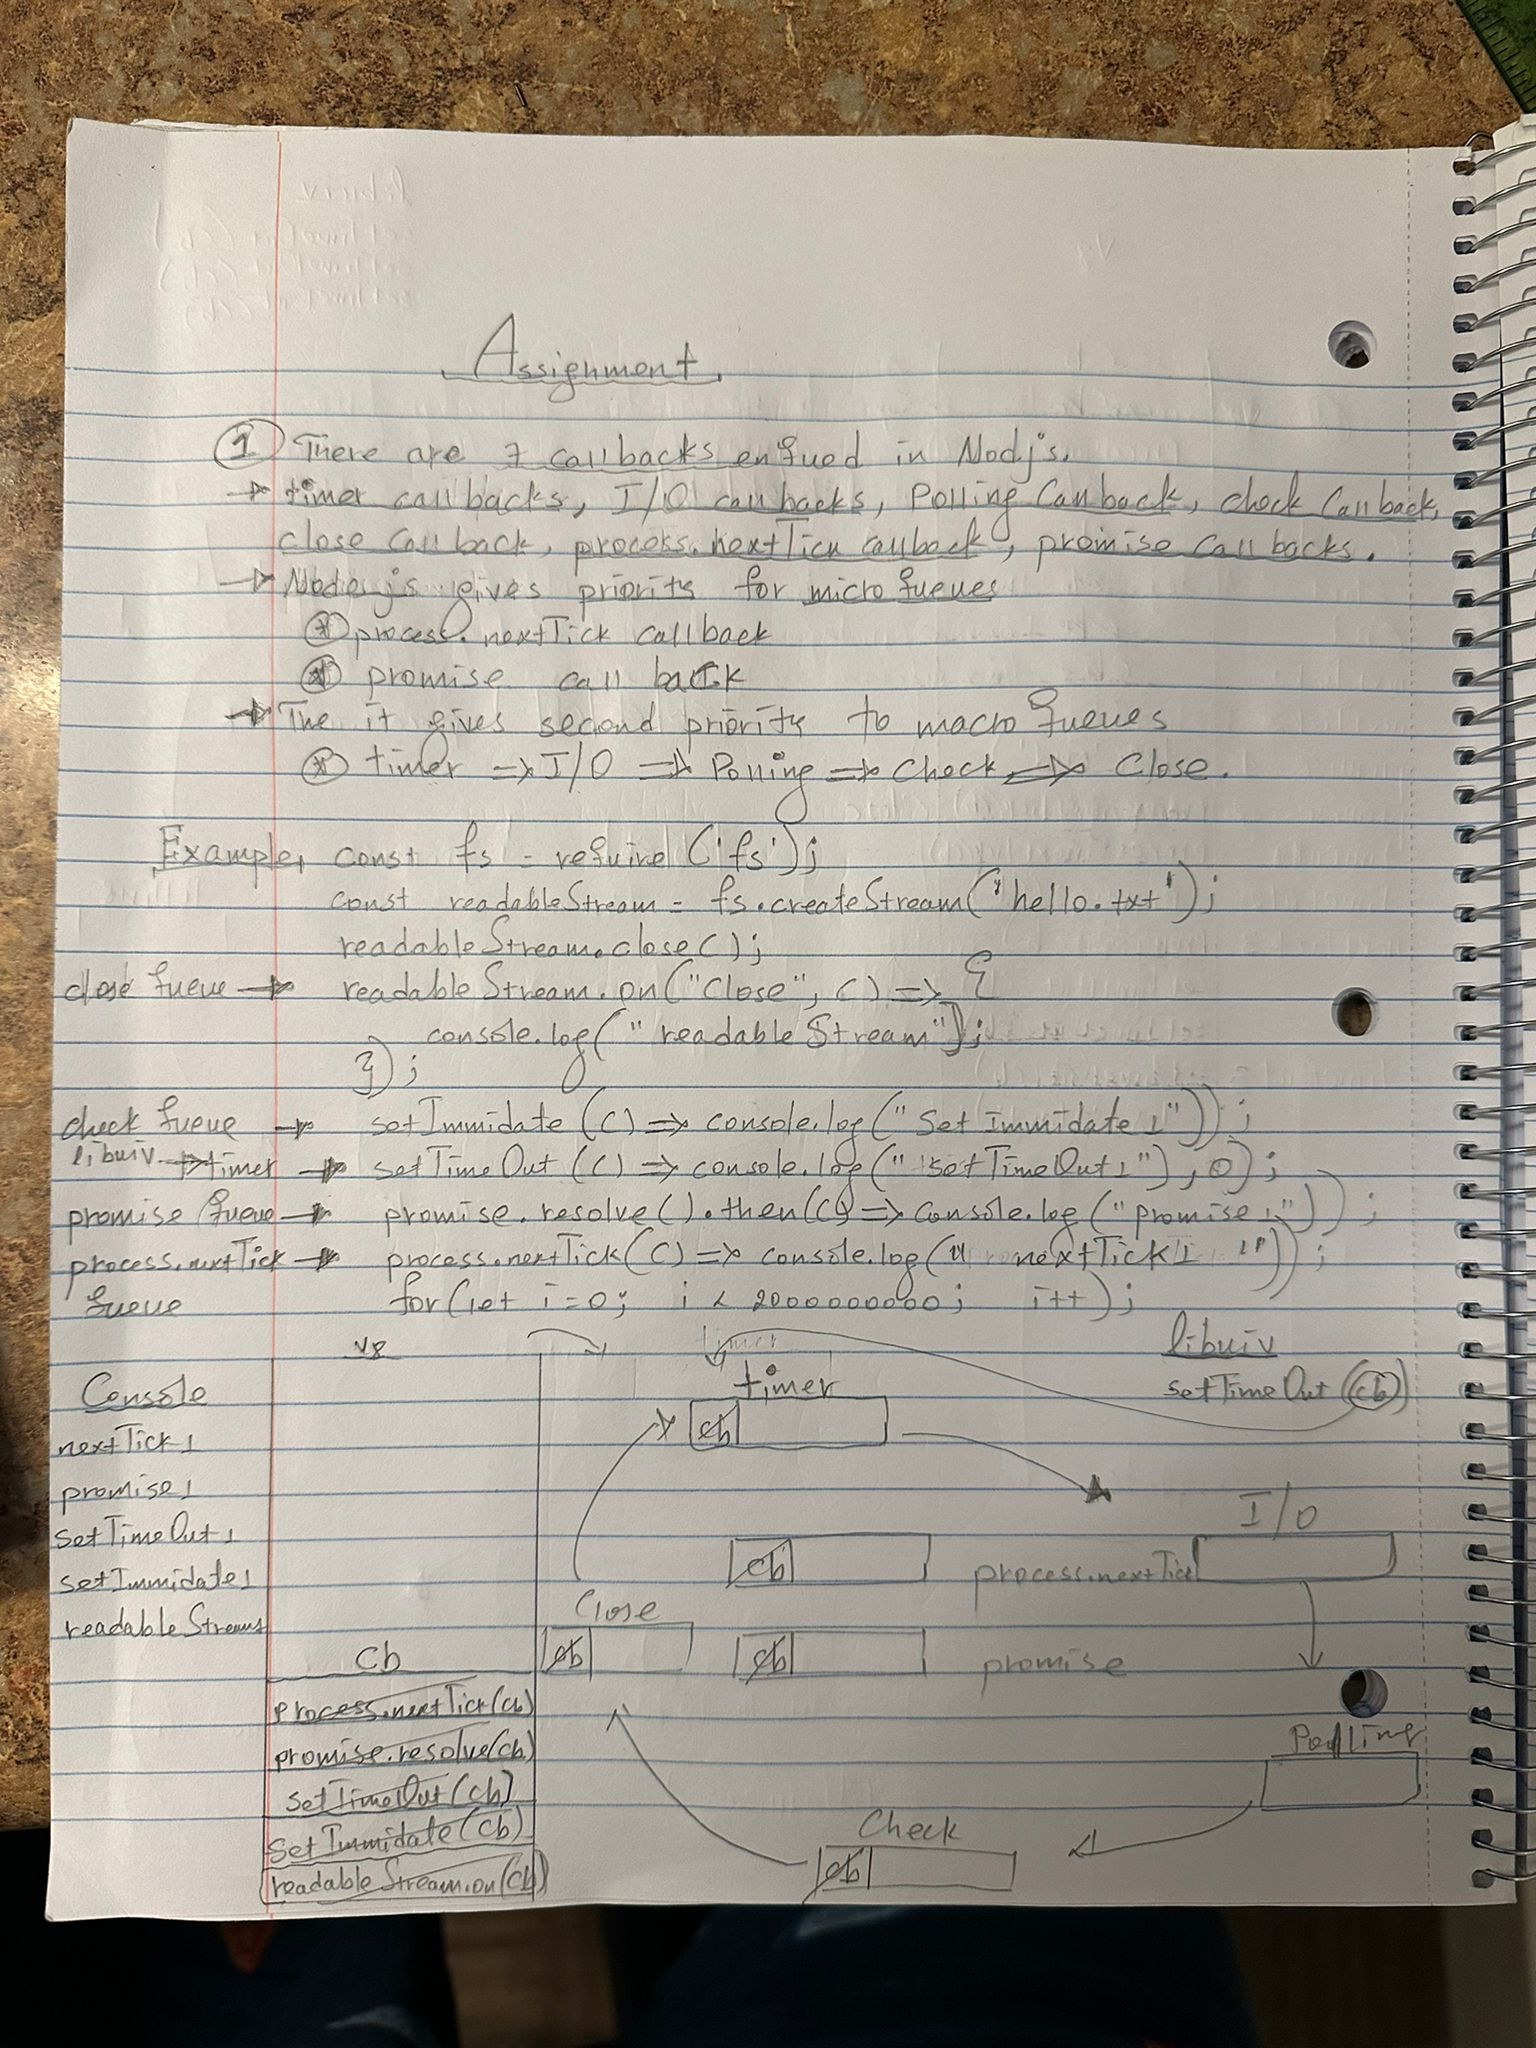 Assignment
1 There are 7 callbacks enqued in Nodjs.
→ timer callbacks, I/O callbacks, Polling Callback, check Callback,
close Callback, process.nextTick callback, promise Callbacks.
→ Nodejs gives priority for micro queues
* process.nextTick callback
* promise call back
→ The it gives second priority to macro queues
* timer => I/O => Polling => Check => Close.
Example, const fs = require('fs');
const readableStream = fs.createStream("hello.txt");
readableStream.close();
close queue → readableStream.on("Close", () => {
console.log(" readable Stream");
});
check queue → setImmidate (() => console.log("Set Immidate 1"));
libuiv → timer → setTimeOut (() => console.log("setTimeOut1"), 0);
promise queue → promise.resolve().then(() => console.log("promise 1"));
process.nextTick → process.nextTick(() => console.log("nextTick1"));
queue for(let i=0; i < 2000000000; i++);
v8 timer libuiv
Console timer setTimeOut(cb)
nextTick1 cb
promise1
setTimeOut1 I/O
setImmidate1 cb process.nextTick
readableStream Close
cb cb cb promise
process.nextTick(cb)
promise.resolve(cb) Polling
setTimeOut(cb)
SetImmidate(cb) Check
readableStream.on(cb) cb